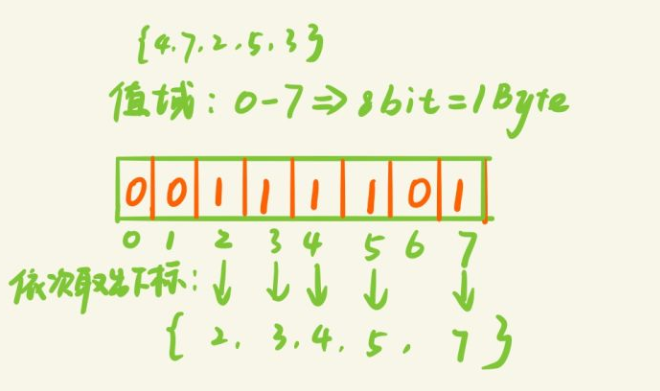 {4.7.2.5.3}
值域：0-7⇒8bit=1Byte
0 0 1 1 1 1 0 1
0 1 2 3 4 5 6 7
依次取出下标：↓ ↓ ↓ ↓ ↓
{ 2. 3.4. 5. 7 }